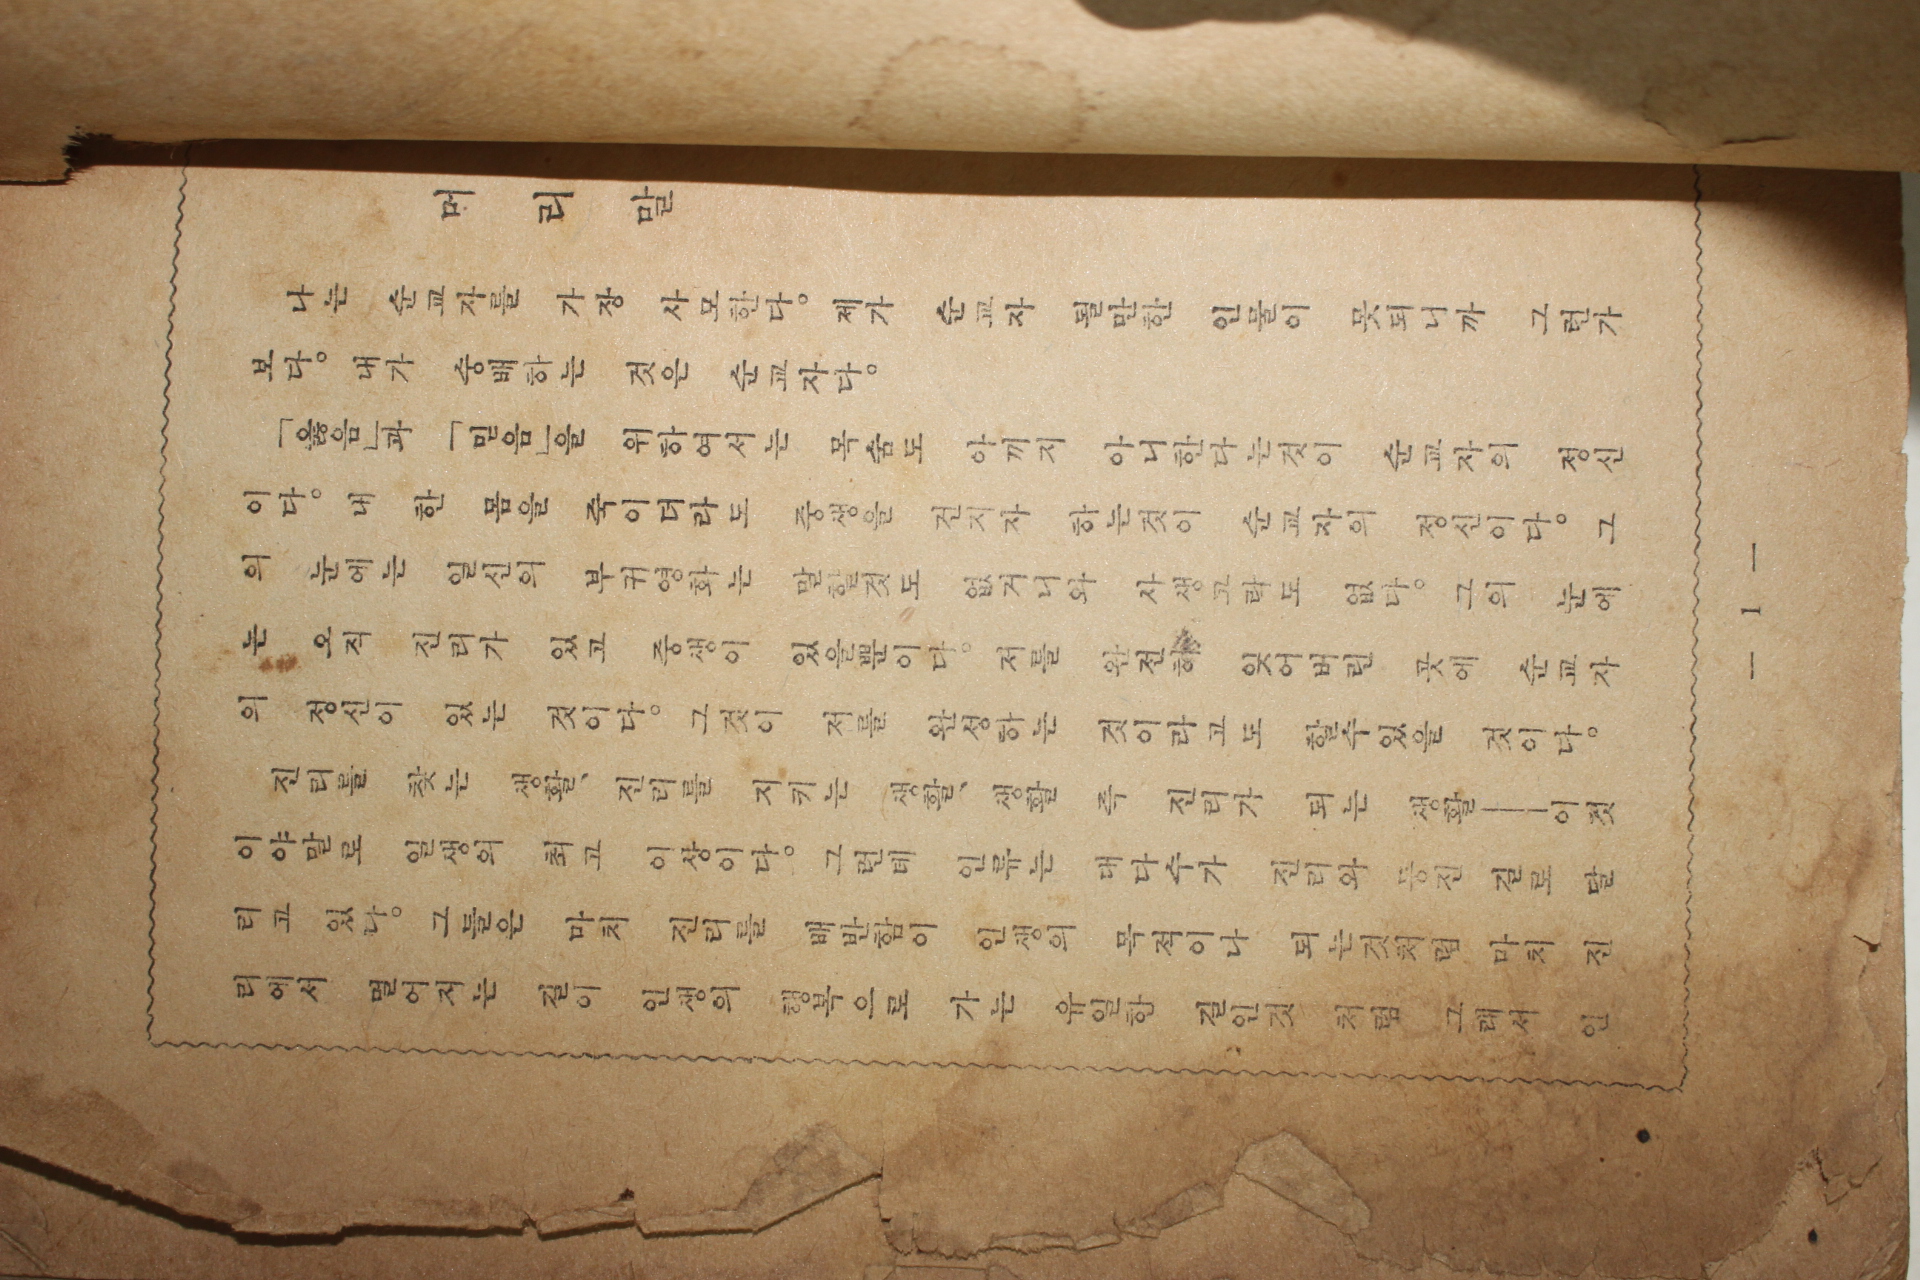 머리말
나는 순교자를 가장 사모한다。 제가 순교자 될만한 인물이 못되니까 그런가
보다。 내가 숭배하는 것은 순교자다。
「옳음」과 「믿음」을 위하여서는 목숨도 아끼지 아니한다는것이 순교자의 정신
이다。 내 한 몸을 죽이더라도 중생을 건지자 하는것이 순교자의 정신이다。 그
의 눈에는 일신의 부귀영화는 말할것도 없거니와 사생고락도 없다。 그의 눈에
는 오직 진리가 있고 중생이 있을뿐이다。 저를 완전히 잊어버린 곳에 순교자
의 정신이 있는 것이다。 그것이 저를 완성하는 것이라고도 할수있을 것이다。
진리를 찾는 생활、 진리를 지키는 생활、 생활 즉 진리가 되는 생활――이것
이야말로 일생의 최고 이상이다。 그런데 인류는 대다수가 진리와 등진 길로 달
리고 있다。 그들은 마치 진리를 배반함이 인생의 목적이나 되는것처럼 마치 진
리에서 멀어지는 길이 인생의 행복으로 가는 유일한 길인것 처럼 그래서 인
― 1 ―